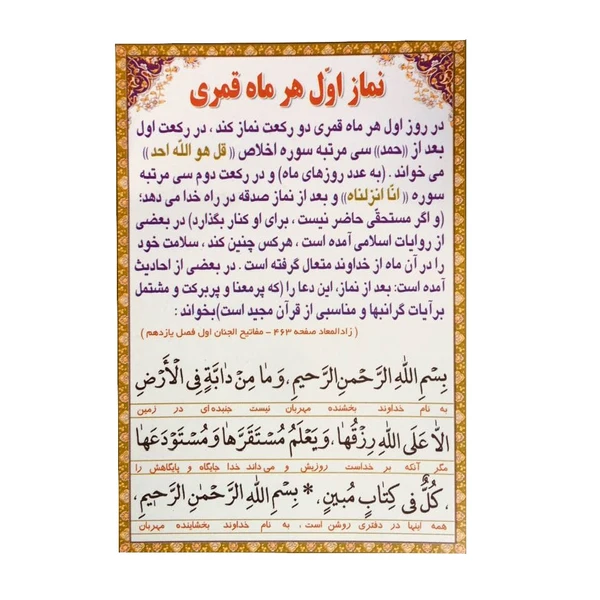 نماز اوّل هر ماه قمری
در روز اول هر ماه قمری دو رکعت نماز کند ، در رکعت اول
بعد از ((حمد)) سی مرتبه سوره اخلاص (( قل هو اللّه احد ))
می خواند . (به عدد روزهای ماه) و در رکعت دوم سی مرتبه
سوره (( انّا انزلناه)) و بعد از نماز صدقه در راه خدا می دهد؛
(و اگر مستحقّی حاضر نیست ، برای او کنار بگذارد) در بعضی
از روایات اسلامی آمده است ، هرکس چنین کند ، سلامت خود
را در آن ماه از خداوند متعال گرفته است . در بعضی از احادیث
آمده است: بعد از نماز، این دعا را (که پرمعنا و پربرکت و مشتمل
برآیات گرانبها و مناسبی از قرآن مجید است)بخواند :
( زادالمعاد صفحه ۴۶۳ - مفاتیح الجنان اول فصل یازدهم )
بِسْمِ اللّٰهِ الرَّحْمٰنِ الرَّحیمِ، وَ مٰا مِنْ دٰابَّةٍ فِی الْأَرْضِ
به نام خداوند بخشنده مهربان نیست جنبده ای در زمین
اِلّٰا عَلَی اللّٰهِ رِزْقُهٰا، وَ یَعْلَمُ مُسْتَقَرَّهٰا وَ مُسْتَوْدَعَهٰا
مگر آنکه بر خداست روزیش و می داند خدا جایگاه و پایگاهش را
، کُلٌّ فی کِتٰابٍ مُبینٍ، * بِسْمِ اللّٰهِ الرَّحْمٰنِ الرَّحیمِ،
همه اینها در دفتری روشن است ، به نام خداوند بخشاینده مهربان